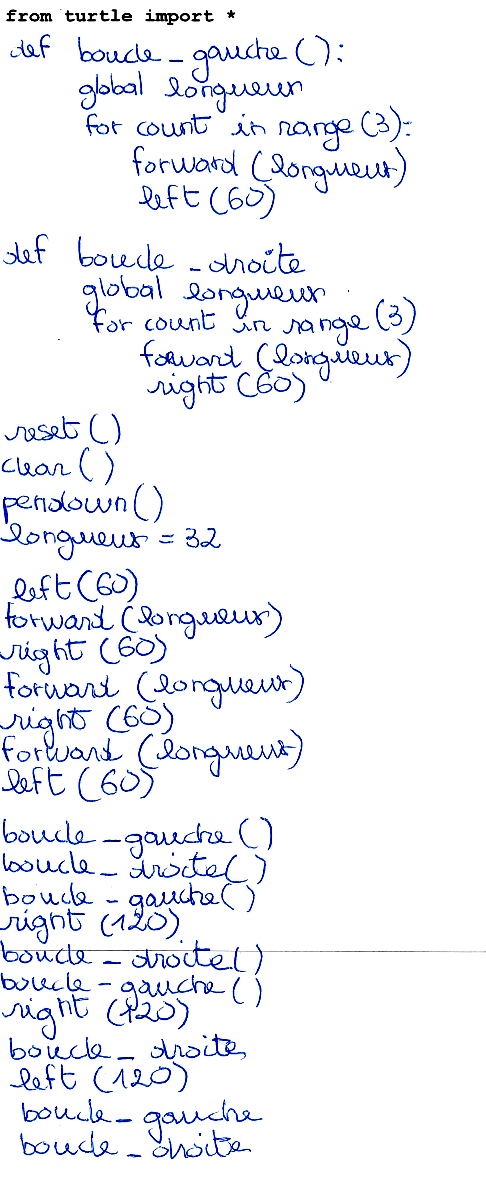 from turtle import *
def boucle_gauche():
global longueur
for count in range(3):
forward(longueur)
left(60)
def boucle_droite
global longueur
for count in range(3)
forward(longueur)
right(60)
reset()
clear()
pendown()
longueur = 32
left(60)
forward(longueur)
right(60)
forward(longueur)
right(60)
forward(longueur)
left(60)
boucle_gauche()
boucle_droite()
boucle_gauche()
right(120)
boucle_droite()
boucle_gauche()
right(120)
boucle_droite
left(120)
boucle_gauche
boucle_droite